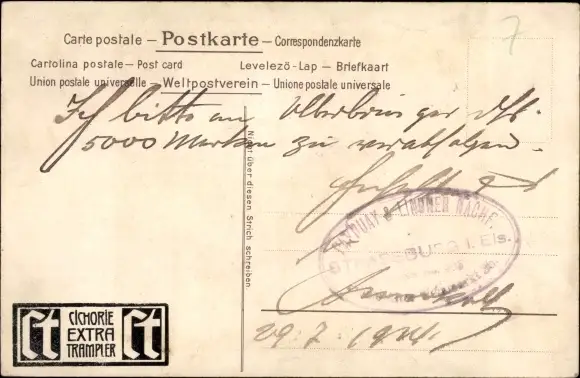 7
Carte postale – Postkarte – Correspondenzkarte
Cartolina postale – Post card Levelező-Lap – Briefkaart
Union postale universelle – Weltpostverein – Unione postale universale
Ich bitte an Überbringer
5000 Marken zu verabfolgen.
Nicht über diesen Strich schreiben.
& LINDNER NACHF.
STRASSBURG i. Els.
29. 7. 1914
Ct CICHORIE EXTRA TRAMPLER Ct